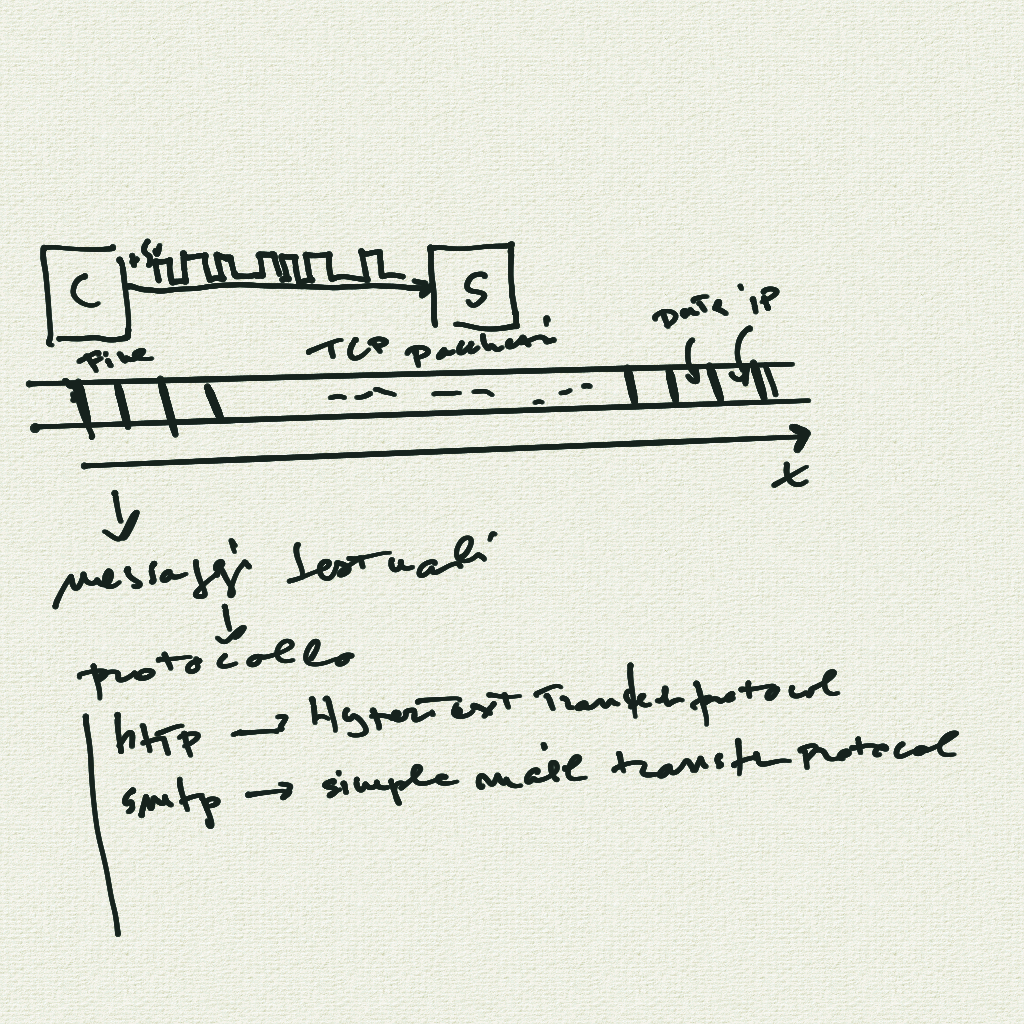 C
S
TCP
Data ip
t
messaggi testuali
↓
protocollo
http → Hyper Text Transfet protocol
smtp → simple mail transfer protocol